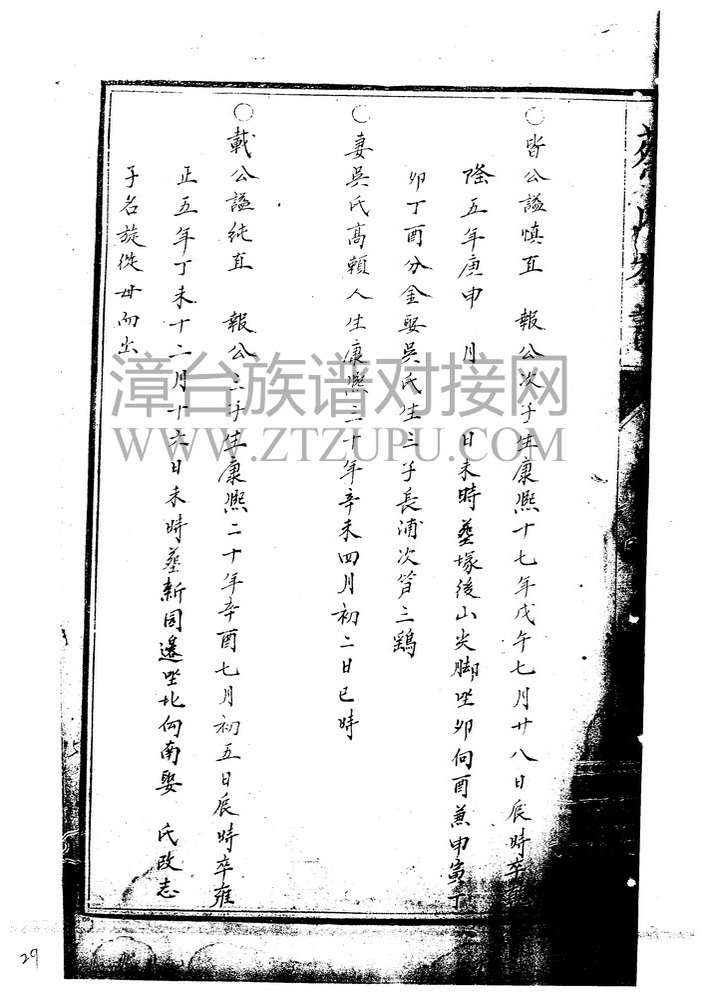 ○皆公謚慎直　報公次子生康熙十七年戊午七月廿八日辰時卒
隆五年庚申　月　日未時塟塚後山尖脚坐卯向酉兼申寅丁
卯丁酉分金娶吳氏生三子長浦次笞三鷄
○妻吳氏高賴人生康熙三十年辛未四月初二日巳時
○載公謚純直　報公三子生康熙二十年辛酉七月初五日辰時卒雍
正五年丁未十二月十六日未時塟新同邊坐北向南娶　氏改志
子名旋從母而出
漳台族谱对接网
WWW.ZTZUPU.COM
29